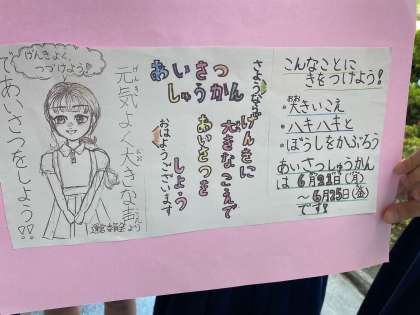 こんなことに
きをつけよう!
・大きいこえ
・ハキハキと
・ぼうしをかぶろう
あいさつしゅうかん
は6月21日(月)
~6月25日(金)
です!
あいさつ
しゅうかん
さようなら
げんきに
大きなこえで
あいさつを
しよう
おはようございます
げんきよく、
つづけよう!
元気よく大きな声
であいさつをしよう!!